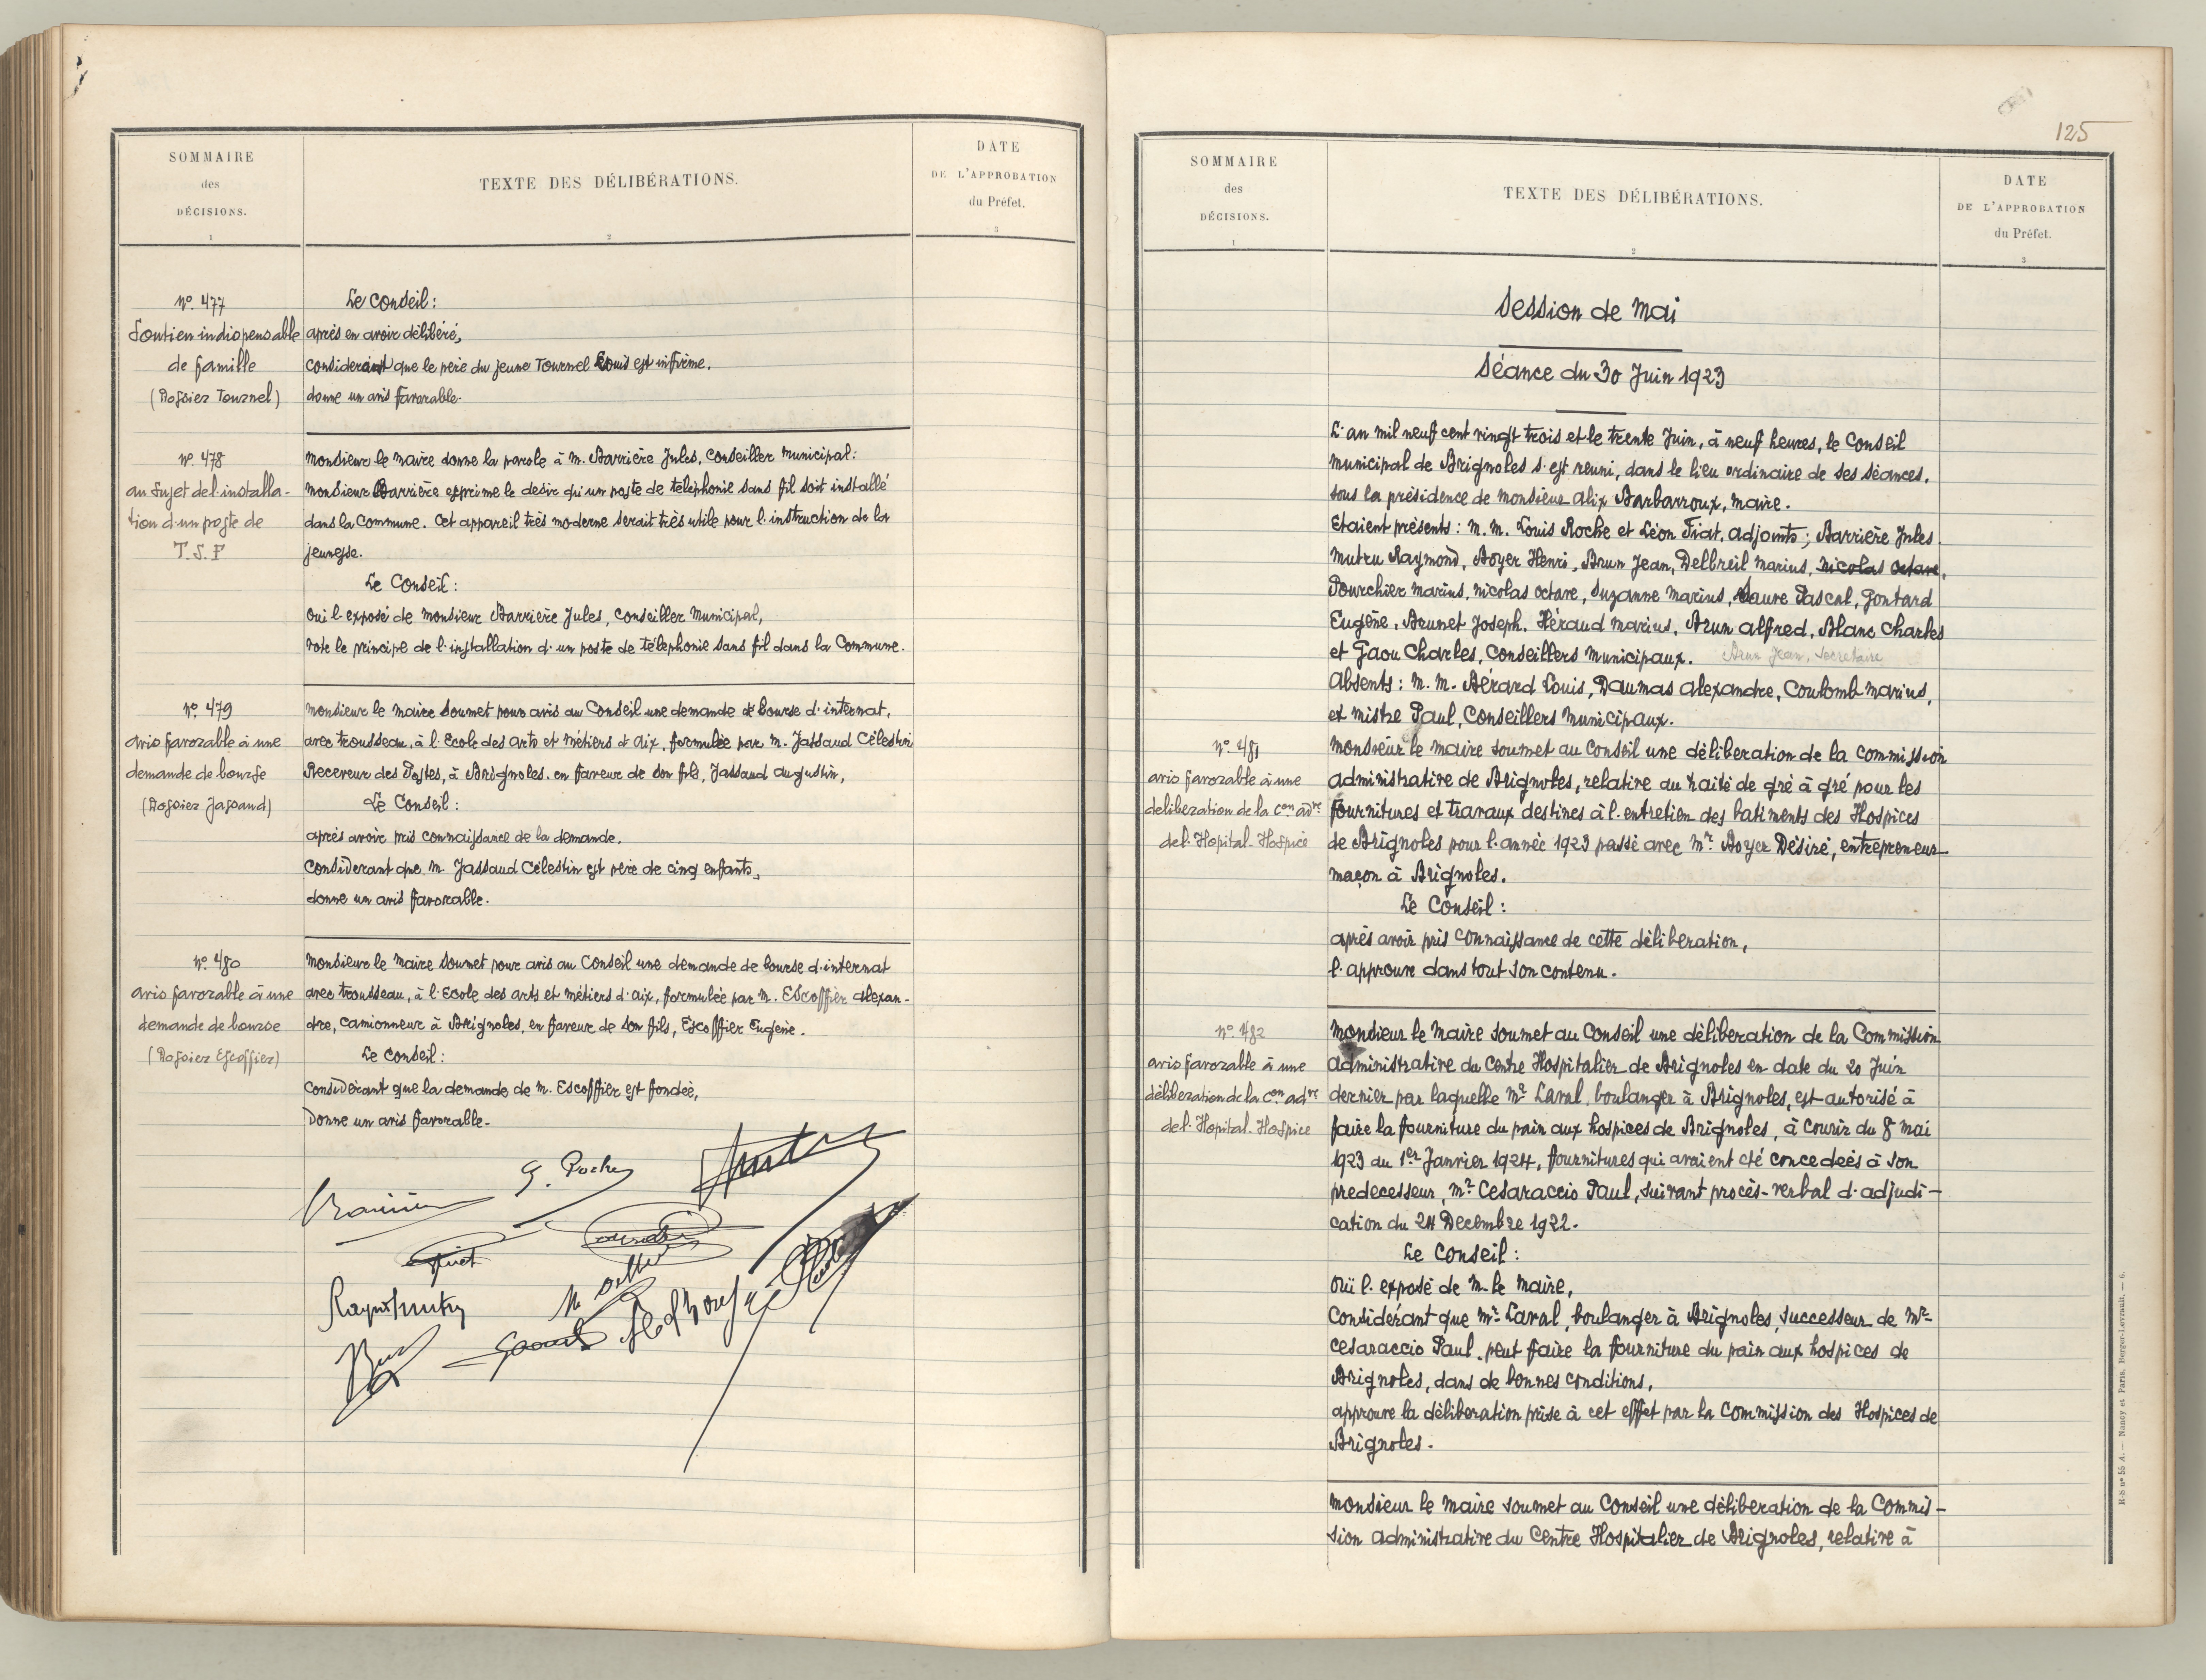 SOMMAIRE
des
DÉCISIONS.
1
TEXTE DES DÉLIBÉRATIONS.
2
DATE
DE L'APPROBATION
du Préfet.
3
N° 477
Soutien indispensable
de famille
(Dossier Tournel)
Le Conseil :
après en avoir délibéré,
considerant que le père du jeune Tournel Louis est infirme.
donne un avis favorable.
N° 478
au sujet de l'installa-
tion d'un poste de
T.S.F
Monsieur le Maire donne la parole à M. Barrière Jules, Conseiller Municipal :
Monsieur Barrière exprime le desir qu'un poste de telephonie sans fil soit installé
dans la Commune. Cet appareil très moderne serait très utile pour l'instruction de la
jeunesse.
Le Conseil :
Oui l'exposé de Monsieur Barrière Jules, Conseiller Municipal,
Vote le principe de l'installation d'un poste de télephonie sans fil dans la Commune.
N° 479
avis favorable à une
demande de bourse
(Dossier Jassaud)
Monsieur le Maire soumet pour avis au Conseil une demande de bourse d'internat,
avec trousseau, à l'Ecole des arts et métiers d'Aix, formulée par M. Jassaud Célestin
Receveur des Postes, à Brignoles, en faveur de son fils, Jassaud Augustin,
Le Conseil :
après avoir pris connaissance de la demande.
Considerant que M. Jassaud Célestin est père de cinq enfants,
donne un avis favorable.
N° 480
avis favorable à une
demande de bourse
(Dossier Escoffier)
Monsieur le Maire soumet pour avis au Conseil une demande de bourse d'internat
avec trousseau, à l'Ecole des arts et métiers d'Aix, formulée par M. Escoffier Alexan-
dre, camionneur à Brignoles, en faveur de son fils, Escoffier Eugène.
Le Conseil :
Considerant que la demande de M. Escoffier est fondée,
Donne un avis favorable.
125
SOMMAIRE
des
DÉCISIONS.
1
TEXTE DES DÉLIBÉRATIONS.
2
DATE
DE L'APPROBATION
du Préfet.
3
Session de Mai
Séance du 30 Juin 1923
L'an mil neuf cent vingt trois et le trente Juin, à neuf heures, le Conseil
Municipal de Brignoles s'est reuni, dans le lieu ordinaire de ses séances,
sous la présidence de Monsieur Alix Barbarroux, Maire.
Etaient présents : M. M. Louis Roche et Léon Fiat, adjoints ; Barrière Jules
Mutru Raymond, Boyer Henri, Brun Jean, Delbreil Marius, Nicolas Octave,
Pourchier Marius, Nicolas Octave, Suzanne Marius, Maure Pascal, Gontard
Eugène, Brunet Joseph, Héraud Marius, Brun Alfred, Blanc Charles
et Gaou Charles, Conseillers Municipaux. Brun Jean, Secretaire
Absents : M. M. Bérard Louis, Daumas Alexandre, Coulomb Marius,
et Mistre Paul, Conseillers Municipaux.
N° 481
avis favorable à une
deliberation de la Con adve
de l'Hopital-Hospice
Monsieur le Maire soumet au Conseil une déliberation de la Commission
administrative de Brignoles, relative au traité de gré à gré pour les
fournitures et travaux destines à l'entretien des batiments des Hospices
de Brignoles pour l'année 1923 passé avec Mr Boyer Désiré, entrepreneur
maçon à Brignoles.
Le Conseil :
après avoir pris connaissance de cette déliberation,
l'approuve dans tout son contenu.
N° 482
avis favorable à une
déliberation de la Con adve
de l'Hopital-Hospice
Monsieur le Maire soumet au Conseil une déliberation de la Commission
administrative du Centre Hospitalier de Brignoles en date du 20 Juin
dernier par laquelle Mr Laval, boulanger à Brignoles, est autorisé à
faire la fourniture du pain aux hospices de Brignoles, à courir du 8 Mai
1923 au 1er Janvier 1924, fournitures qui avaient été concedeés à son
predecesseur, Mr Cesaraccio Paul, suivant procès-verbal d'adjudi-
cation du 24 Decembre 1922.
Le Conseil :
Ouï l'exposé de M. le Maire,
Considérant que Mr Laval, boulanger à Brignoles, successeur de Mr
Cesaraccio Paul, peut faire la fourniture du pain aux hospices de
Brignoles, dans de bonnes conditions,
approuve la déliberation prise à cet effet par la Commission des Hospices de
Brignoles.
Monsieur le Maire soumet au Conseil une déliberation de la Commis-
sion administrative du Centre Hospitalier de Brignoles, relative à
R.S. n° 55 A. — Nancy et Paris, Berger-Levrault. — 6.